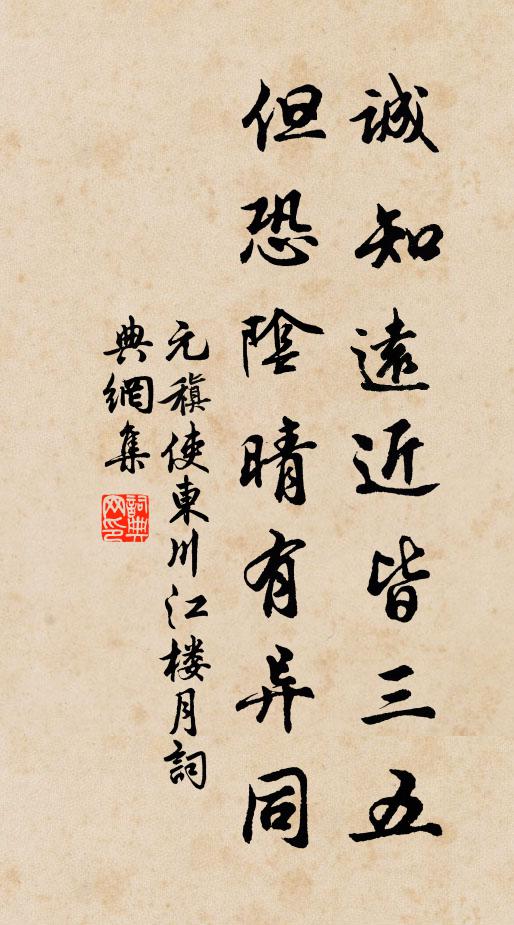 誠知遠近皆三五
但恐陰晴有异同
元稹使東川江楼月詞
典網集
詞典网印